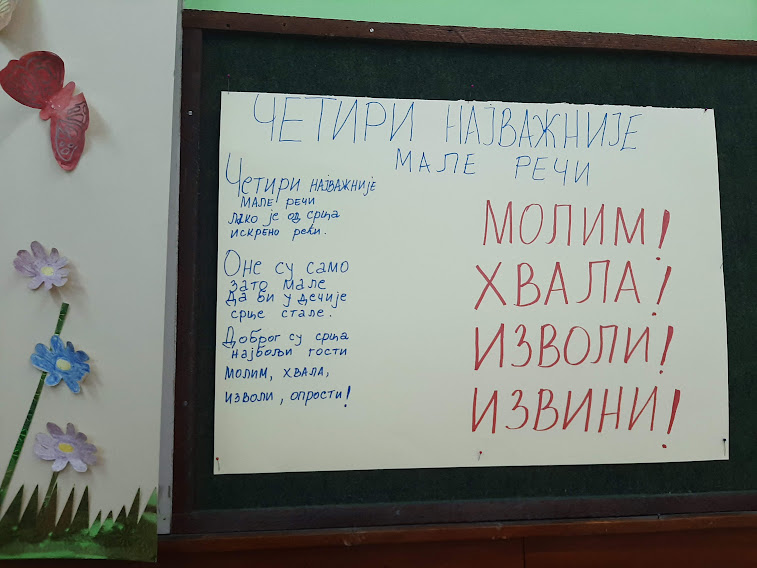 ЧЕТИРИ НАЈВАЖНИЈЕ
МАЛЕ РЕЧИ
Четири НАЈВАЖНИЈЕ
МАЛЕ РЕЧИ
лако је од срца
искрено рећи.
Оне су само
зато мале
да би у дечије
срце стале.
Доброг су срца
најбољи гости
молим, хвала,
изволи, опрости!
МОЛИМ!
ХВАЛА!
ИЗВОЛИ!
ИЗВИНИ!